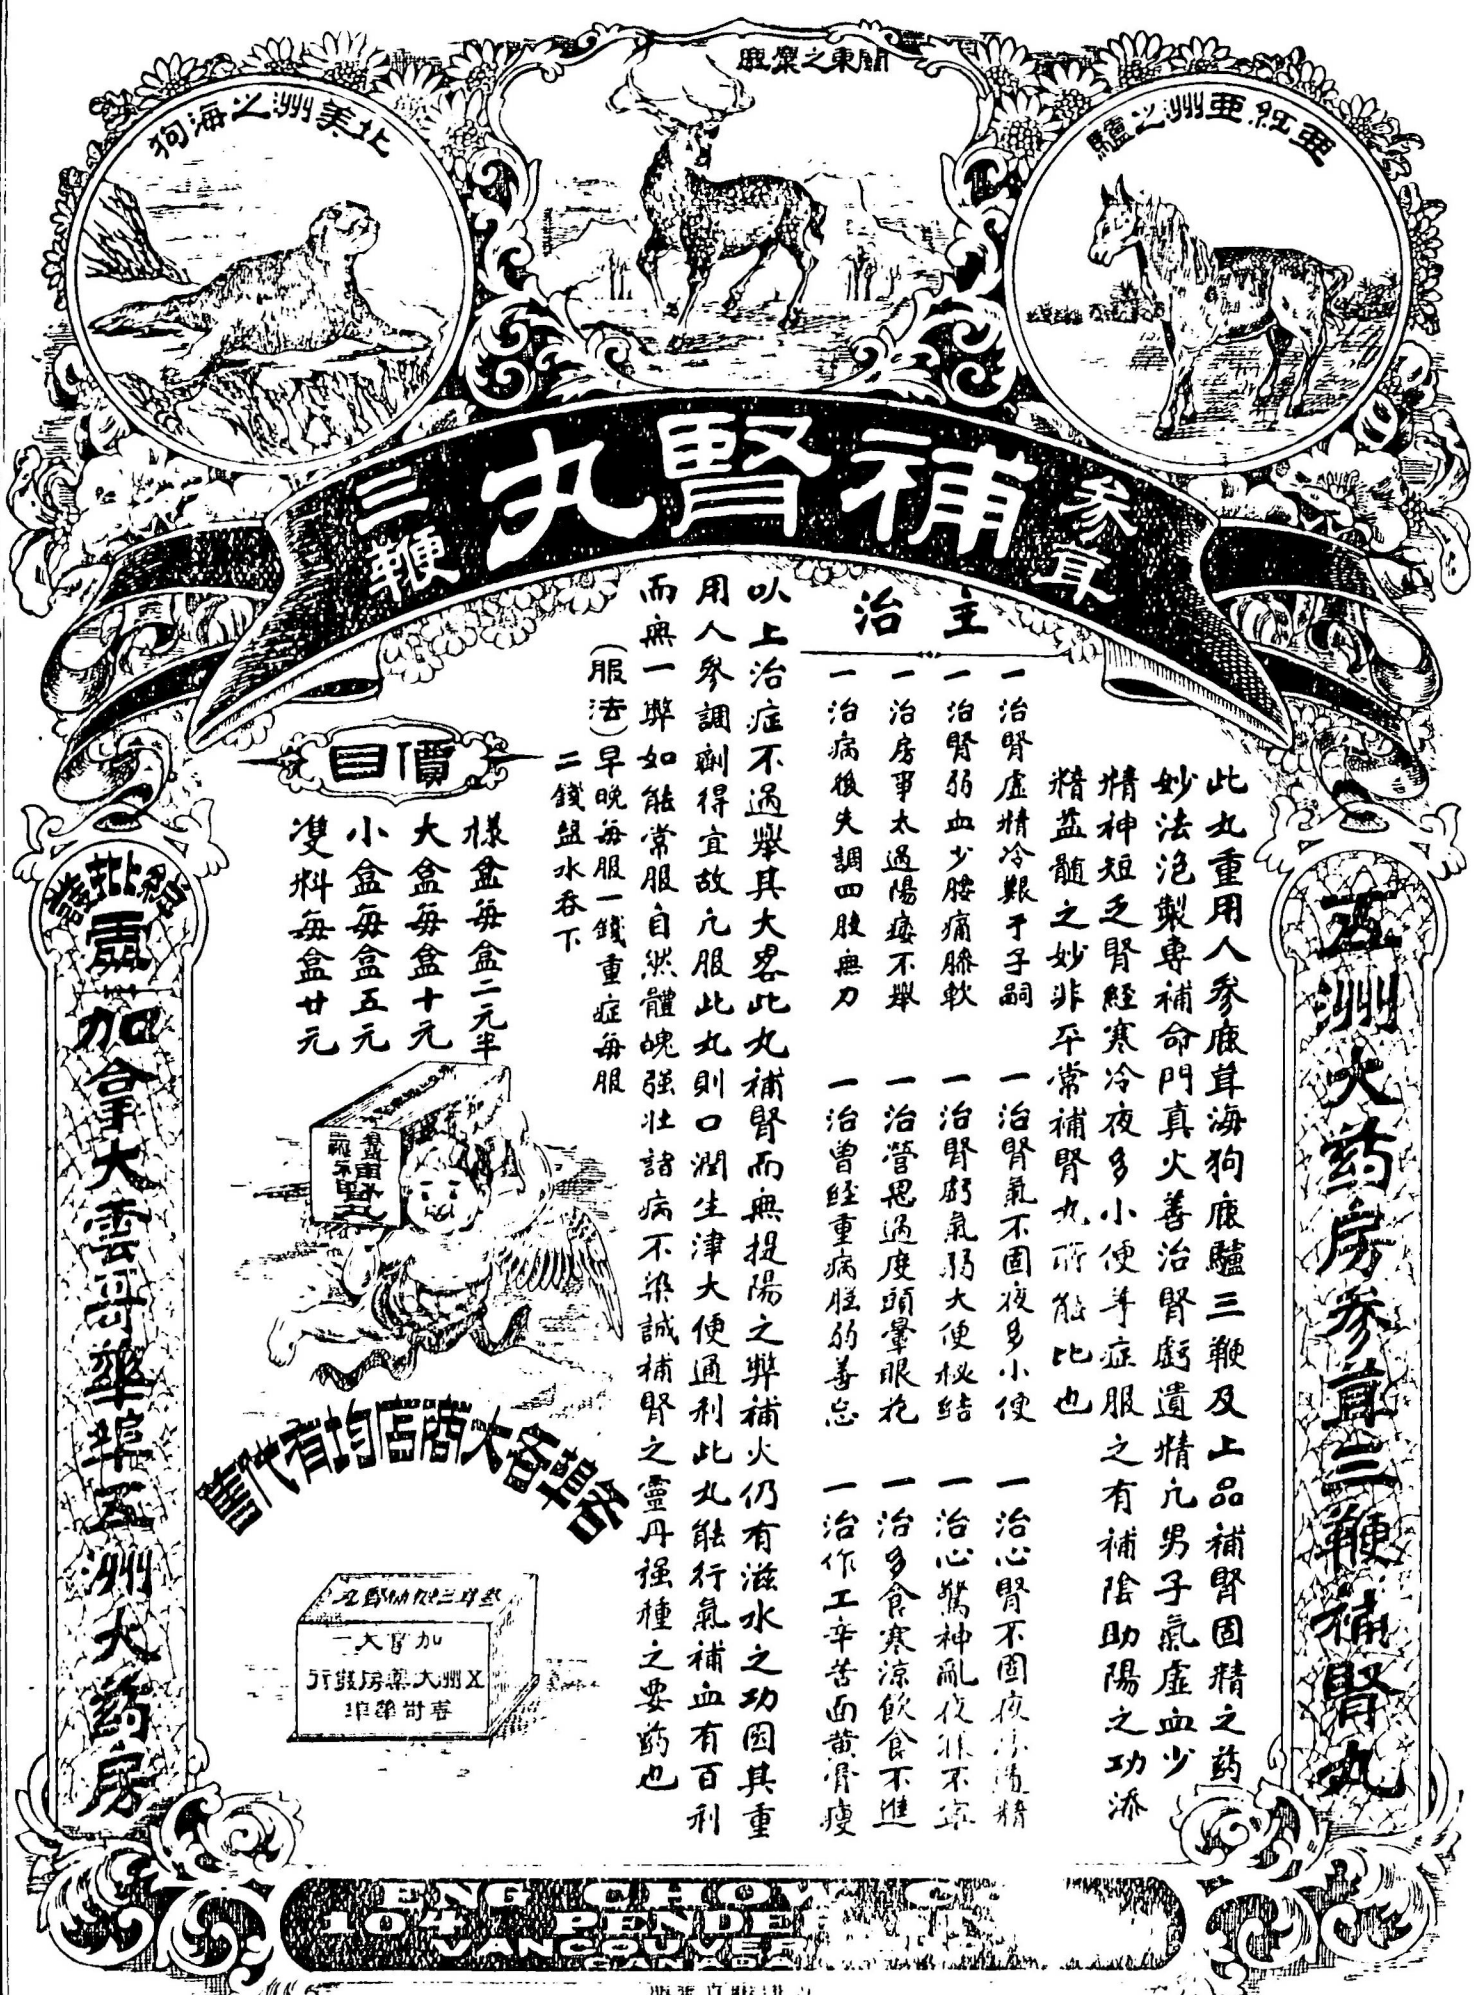 關東之麋鹿
亞紅亜洲之驢
北美洲之海狗
參茸
補腎丸
三鞭
五洲大药房參茸三鞭補腎丸
此丸重用人參鹿茸海狗鹿驢三鞭及上品補腎固精之药
妙法泡製專補命門真火善治腎虧遺精凢男子氣虛血少
精神短乏腎經寒冷夜多小便等症服之有補陰助陽之功添
精益髓之妙非平常補腎丸所能比也
主治
一治腎虛精冷艱于子嗣
一治腎氣不固夜多小便
一治心腎不固夜亦遺精
一治腎弱血少腰痛膝軟
一治腎虧氣弱大便秘結
一治心驚神亂夜
一治房事太過陽痿不舉
一治營思過度頭暈眼花
一治多食寒涼飲食不進
一治病後失調四肢無力
一治曾經重病胵弱善忘
一治作工辛苦面黃骨瘦
以上治症不過舉其大畧此丸補腎而無提陽之弊補火仍有滋水之功因其重
用人參調劑得宜故凢服此丸則口潤生津大便通利此丸能行氣補血有百利
而無一弊如能常服自然體魄强壯諸病不染誠補腎之靈丹强種之要药也
(服法)早晚每服一錢重症每服
二錢盐水吞下
價目
樣盒每盒二元半
大盒每盒十元
小盒每盒五元
雙料每盒廿元
各埠各大商店均有代售
加官大一
五州大藥房發行
雲哥華埠
總批發
處
加拿大雲哥華埠五洲大药房
ENG CHO
104 PENDER
VANCOUVER
CANADA